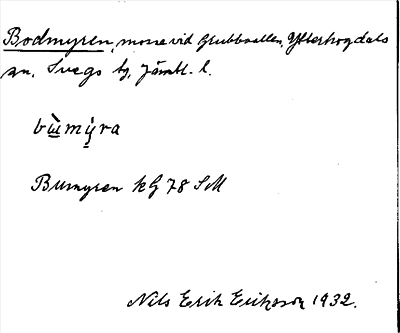 Bodmyren, mosse vid Grubbvallen, Ytterhogdals
sn, Svegs tg, Jämtl. l.
bu̇̀mẏ̀ra
Bumyren kG 78 SM
Nils Erik Eriksson 1932.